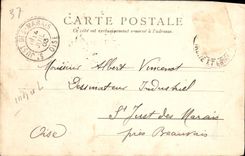 37
CARTE POSTALE
Ce côté est exclusivement réservé à l'adresse
Monsieur Albert Vincenot
Dessinateur Industriel
St Just des Marais
Oise près Beauvais